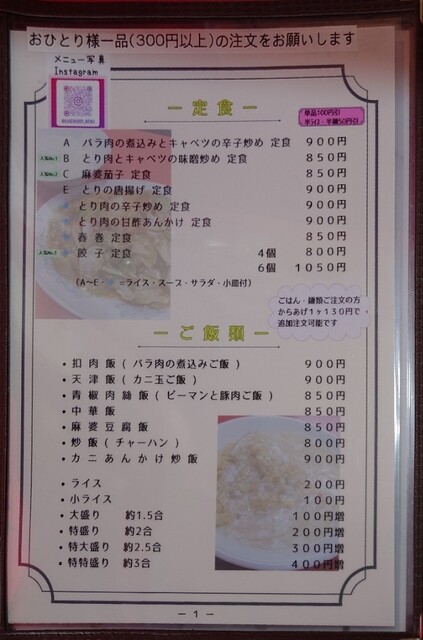 おひとり様一品(300円以上)の注文をお願いします
メニュー写真
Instagram
定食
単品100円引
半ライス・半麺50円引
A バラ肉の煮込みとキャベツの辛子炒め 定食 900円
人気No.1 B とり肉とキャベツの味噌炒め 定食 850円
人気No.2 C 麻婆茄子 定食 850円
E とりの唐揚げ 定食 900円
とり肉の辛子炒め 定食 900円
とり肉の甘酢あんかけ 定食 900円
春巻 定食 850円
餃子 定食 4個 800円
6個 1050円
(A~E・ =ライス・スープ・サラダ・小皿付)
ごはん・麺類ご注文の方
からあげ1ヶ130円で
追加注文可能です
ご飯類
・扣肉飯 ( バラ肉の煮込みご飯 ) 900円
・天津飯 ( カニ玉ご飯 ) 900円
・青椒肉絲飯 ( ピーマンと豚肉ご飯 ) 850円
・中華飯 850円
・麻婆豆腐飯 850円
・炒飯 ( チャーハン ) 800円
・カニあんかけ炒飯 900円
・ライス 200円
・小ライス 100円
・大盛り 約1.5合 100円増
・特盛り 約2合 200円増
・特大盛り 約2.5合 300円増
・特特盛り 約3合 400円増
- 1 -